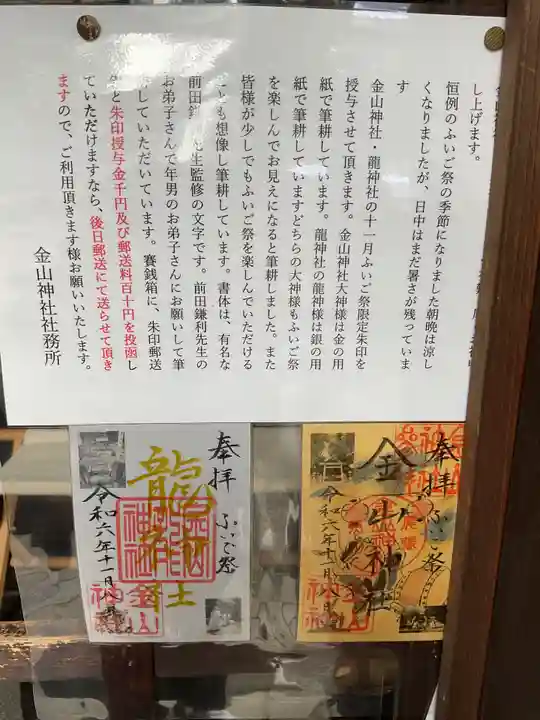 し上げます。
恒例のふいご祭の季節になりました朝晩は涼し
くなりましたが、日中はまだ暑さが残っていま
す
金山神社・龍神社の十一月ふいご祭限定朱印を
授与させて頂きます。金山神社大神様は金の用
紙で筆耕しています。龍神社の龍神様は銀の用
紙で筆耕していますどちらの大神様もふいご祭
を楽しんでお見えになると筆耕しました。また
皆様が少しでもふいご祭を楽しんでいただける
とも想像し筆耕しています。書体は、有名な
前田鎌 先生監修の文字です。前田鎌利先生の
お弟子さんで年男のお弟子さんにお願いして筆
していただいています。賽銭箱に、朱印郵送
と朱印授与金千円及び郵送料百十円を投函し
ていただけますなら、後日郵送にて送らせて頂き
ますので、ご利用頂きます様お願いいたします。
金山神社社務所
奉拝 ふいご祭
龍神社
令和六年十一月
金山神社
奉拝 ふいご祭
金山神社
令和六年十一月
金山神社